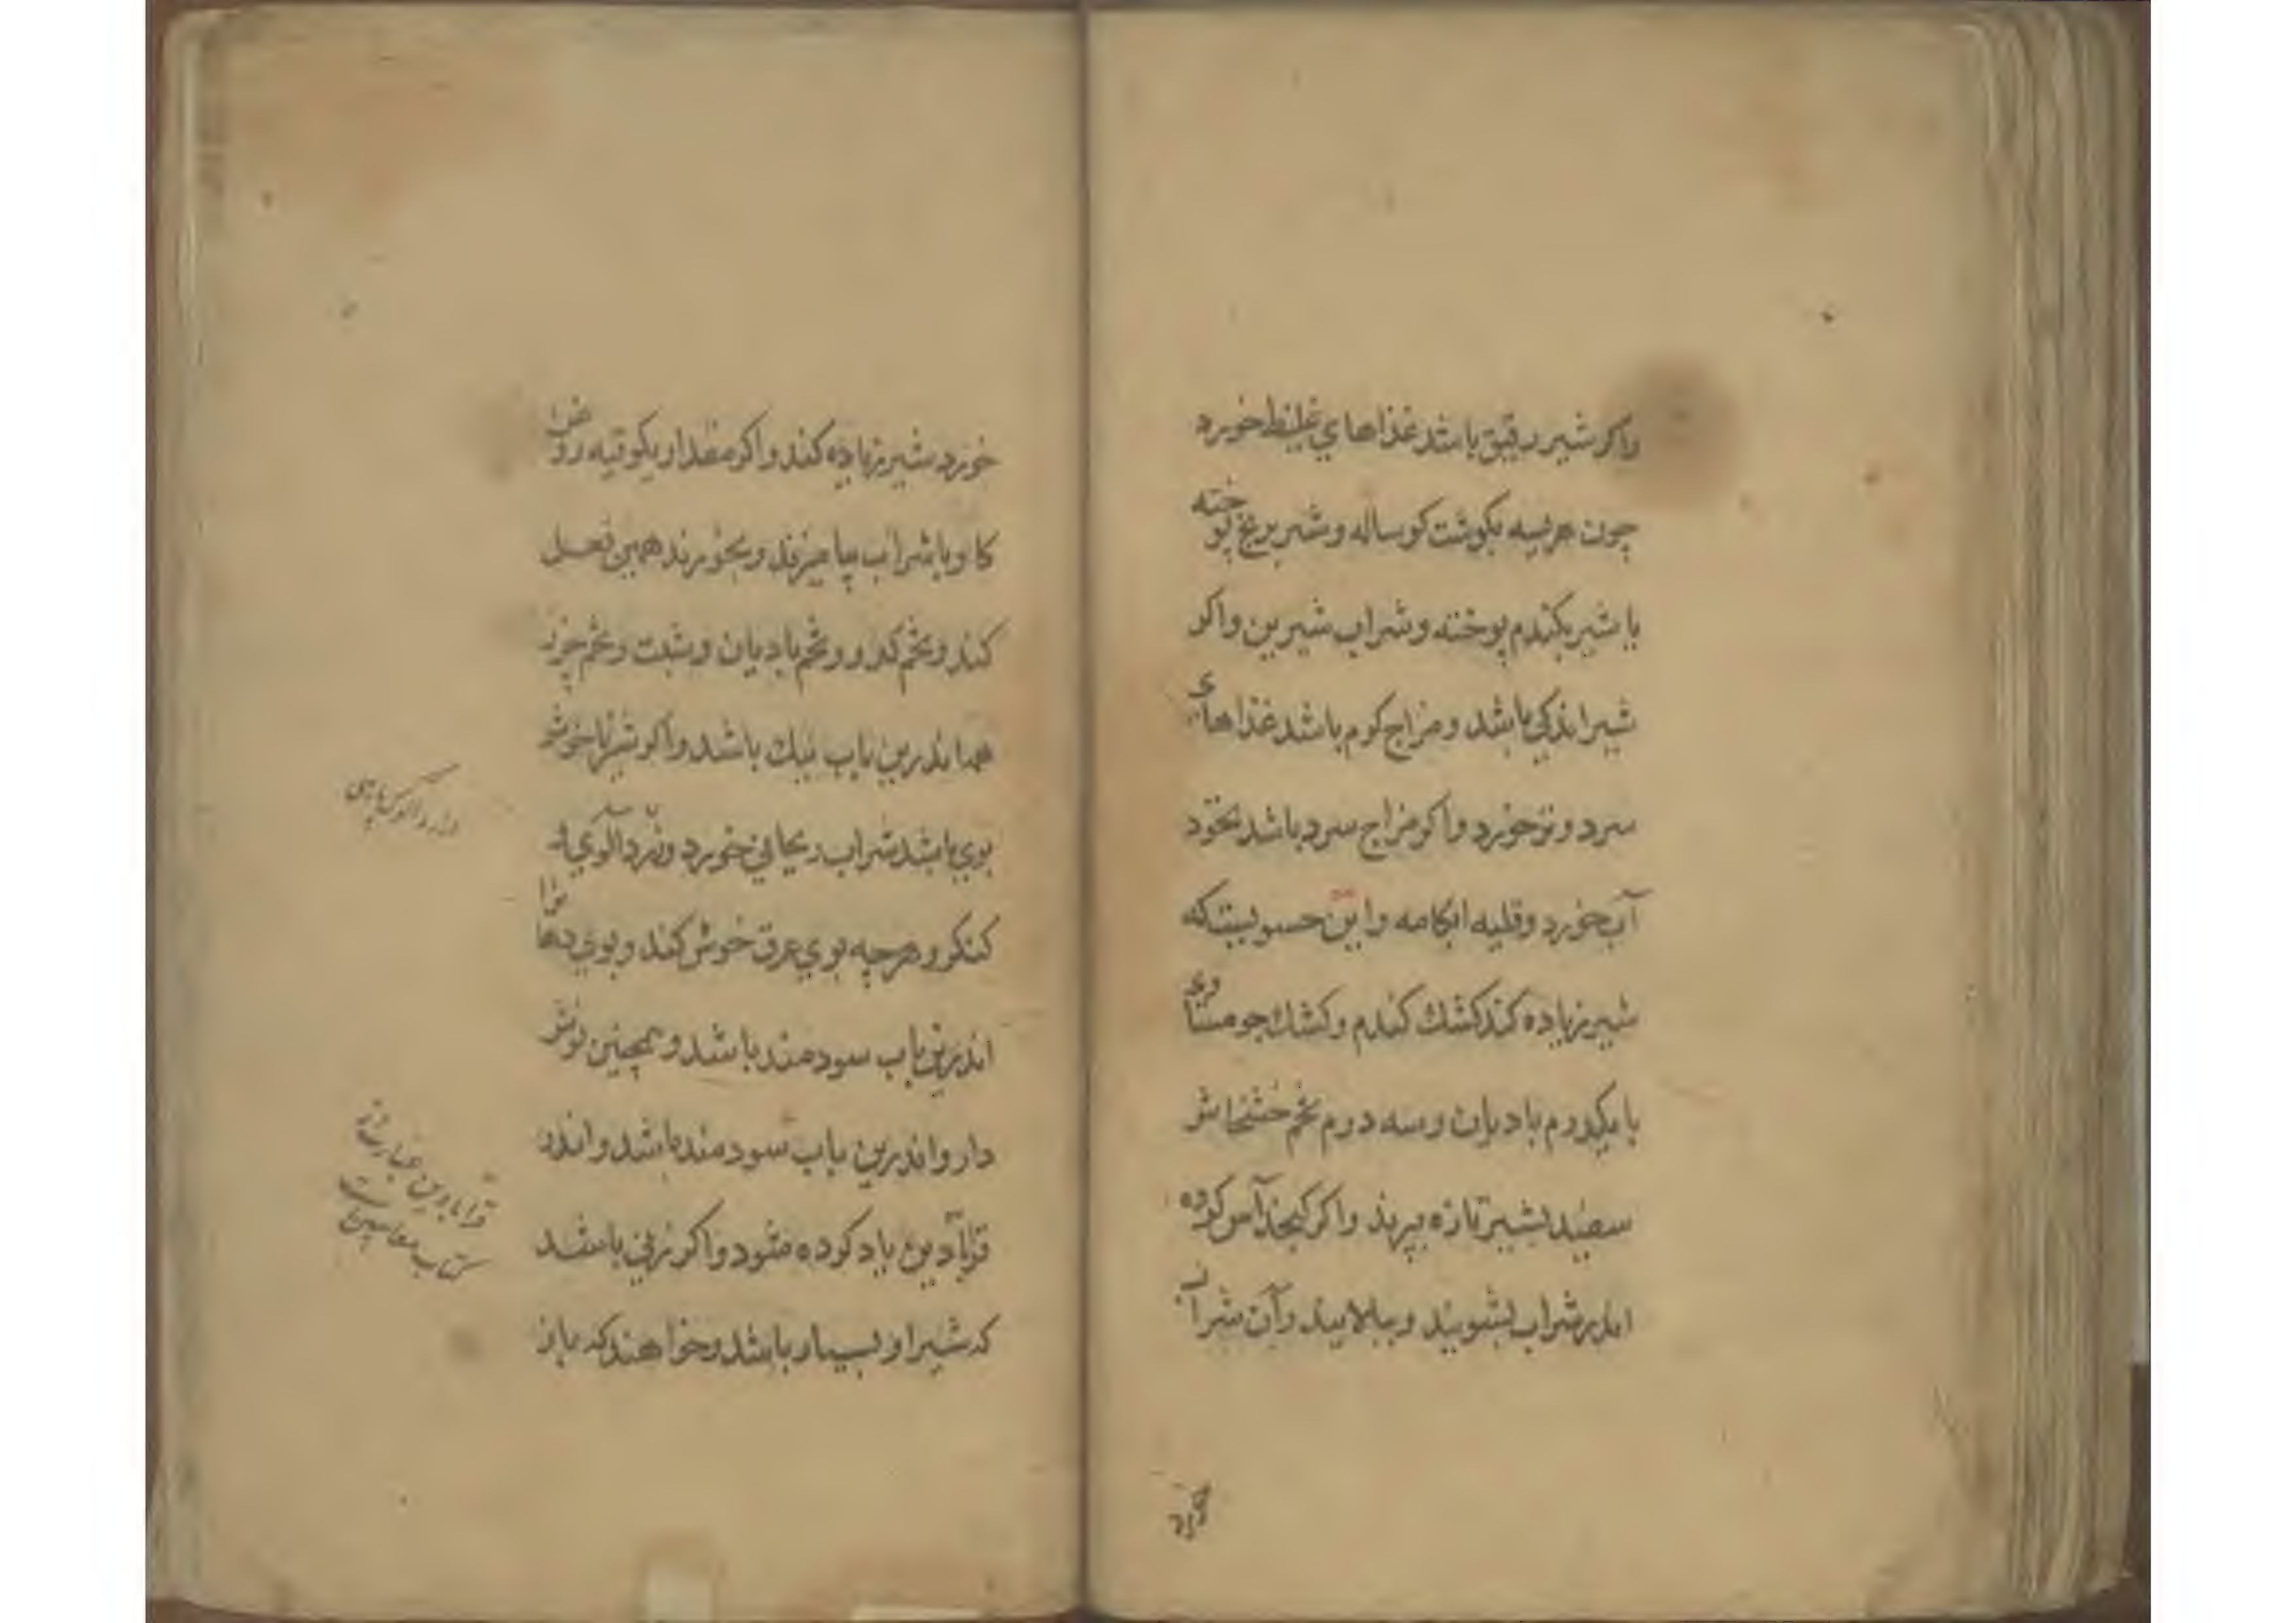 واكر شير رقيق باشد غذاهاي غليظ خورد
چون هريسه بكوشت كوساله و شير برنج پوخته
با شير بكندم پوخته و شراب شيرين واكر
شير اندكي باشد و مزاج كرم باشد غذاهاي
سرد و تر خورد واكر مزاج سرد باشد نخود
آب خورد و قليه ابكامه واين حسو ليست كه
شير زياده كند كشك كندم و كشك جو مساوي
با يكدرم باديان و سه درم تخم خشخاش
سفيد بشير تازه بپزند واكر كنجد آس كرده
اندر شراب بشويند و ببالايند وآن شراب
خورد
خورد شير زياده كند واكر مقدار يكوقيه روغن
كاو با شراب بياميزند و بخورند همين فعل
كند و تخم كدو و تخم باديان و شبت و تخم خوز
همه اندرين باب نيك باشد واكر شير ناخوش
بوي باشد شراب ريحاني خورد و نرد آلوي
كنكر و هرچه بوي عرق خوش كند و بوي دهان را
اندرين باب سودمند باشد و همچنين نوش
دارو اندرين باب سودمند باشد و اندر
قرابادين ياد كرده شود واكر زني باشد
كه شير او بسيار باشد و خواهند كه باز
قرابادين عبارت از
كتاب معاجين است